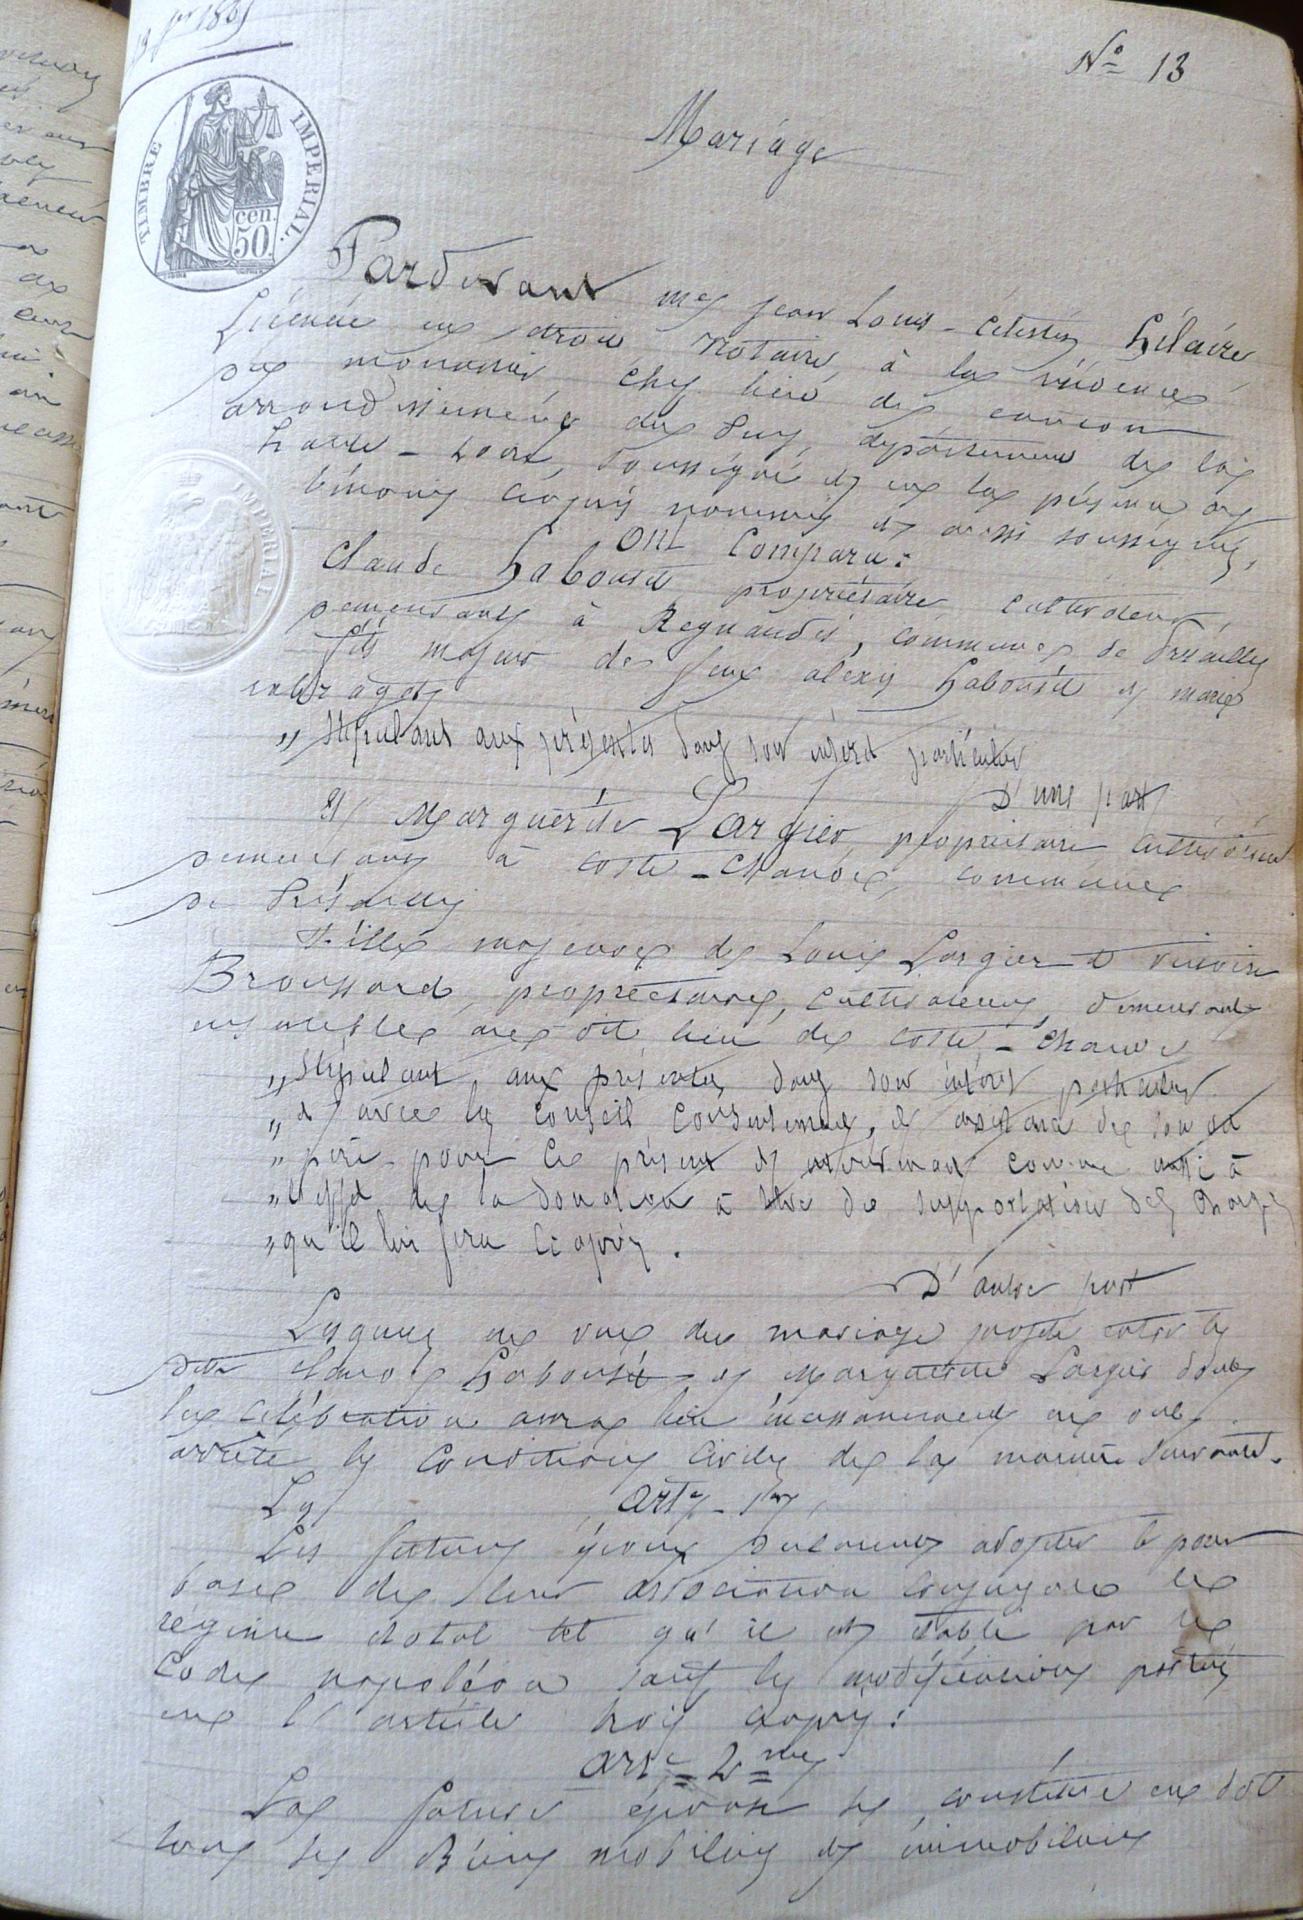 13 Jer 1865
No 13
TIMBRE IMPERIAL.
50 cen.
Mariage
Pardevant Me Jean Louis-Célestin Hilaire
Licencié en droit Notaire, à la résidence
du monastier, chef lieu de canton
arrondissement du Puy, département de la
haute-Loire, soussigné et en la présence des
témoins ciaprès nommés et aussi soussignés,
IMPERIAL
Ont Comparu:
Claude Labourit propriétaire cultivateur,
demeurant à Regnaudis, commune de Présailles
fils majeur de feux alexis Labourit et marie
,, Stipulant aux présentes dans son intérêt particulier
D'une part
Et Marguerite Largier, propriétaire, cultivateur
demeurant à Coste-Chaude, commune
de Présailles
Fille majeure de Louis Largier et
Broussard, propriétaires, cultivateurs, demeurant
ensemble au dit lieu de Coste-Chaude
,, Stipulant, aux présentes, dans son intérêt particulier
,, et avec le conseil consentement, et assistance de son dit
,, père pour les présentes et comme aussi à
,, l'effet de la donation à titre de supportation des charges
,, qu'il lui fera ci après.
D'autre part
Lesquels en vue du mariage projeté entre les
dits Claude Labourit et Marguerite Largier dont
la célébration aura lieu incessamment en ont
arrêté les conditions civiles de la manière suivante.
Art. 1er
Les futurs époux déclarent adopter et pour
base de leur association conjugale le
régime dotal tel qu'il est établi par le
Code napoléon sauf les modifications portées
en l'article trois ciaprès:
Art. 2me
La future épouse se constitue en dot
tous ses Biens mobiliers et immobiliers